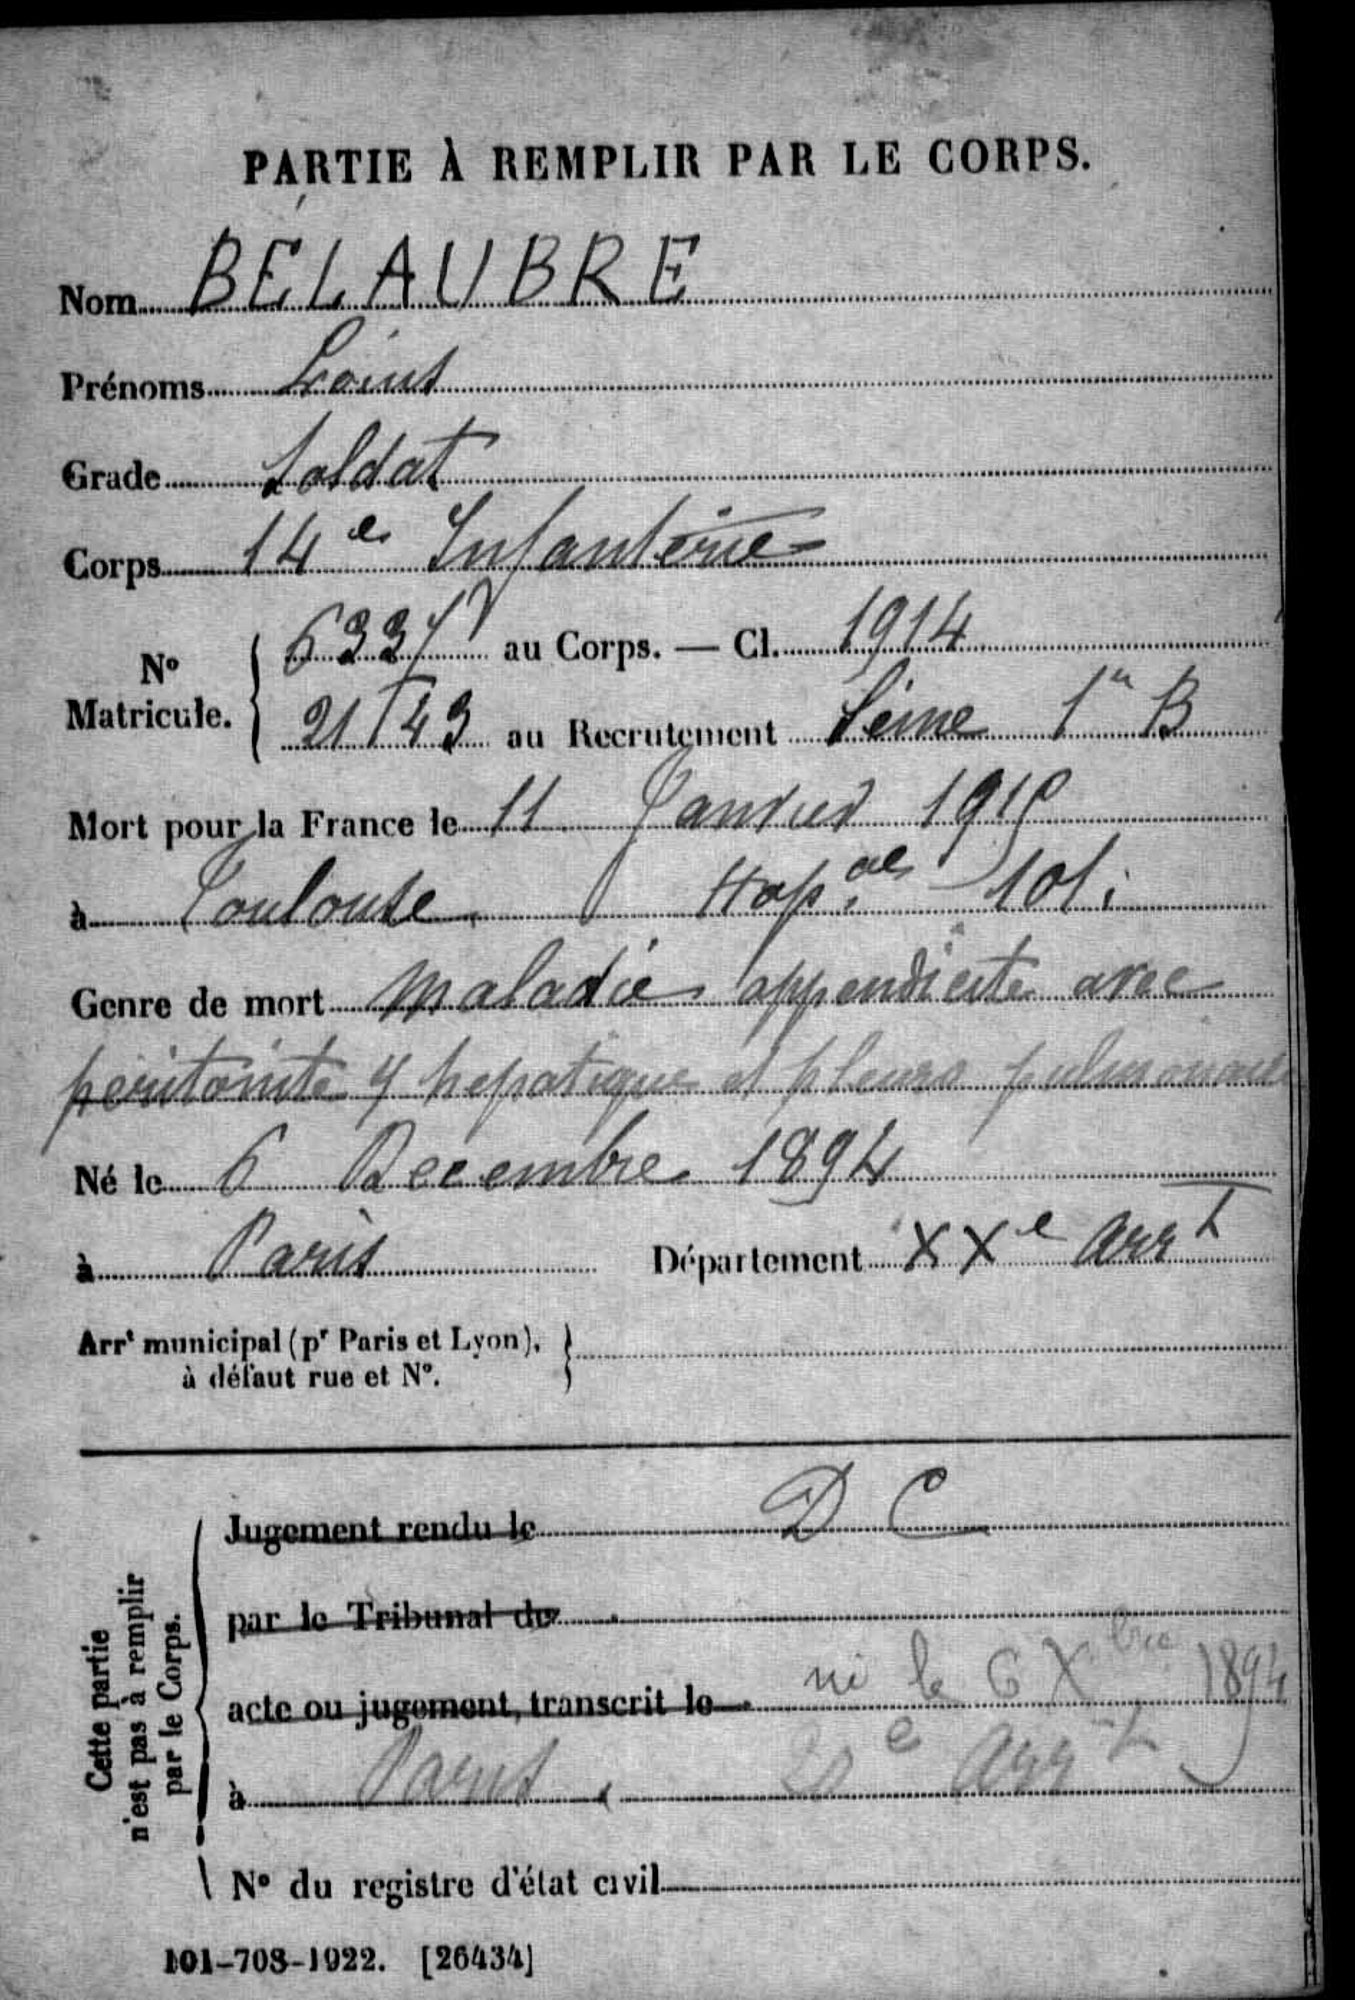 PARTIE À REMPLIR PAR LE CORPS.
Nom BÉLAUBRE
Prénoms Louis
Grade Soldat
Corps 14e Infanterie
N° Matricule. { au Corps. — Cl. 1914
2143 au Recrutement Seine 1er B
Mort pour la France le 11 Janvier 1915
à Toulouse Hop.al 101
Genre de mort maladie appendicite avec
péritonite hepatique et pleuro pulmonaire
Né le 6 Decembre 1894
à Paris Département XXe Arrt
Arrt municipal (pr Paris et Lyon), }
à défaut rue et N°.
Cette partie
n'est pas à remplir
par le Corps.
Jugement rendu le D C
par le Tribunal de
acte ou jugement, transcrit le né le 6 Xbre 1894
à Paris 20e Arrt
N° du registre d'état civil
101-708-1922. [26434]